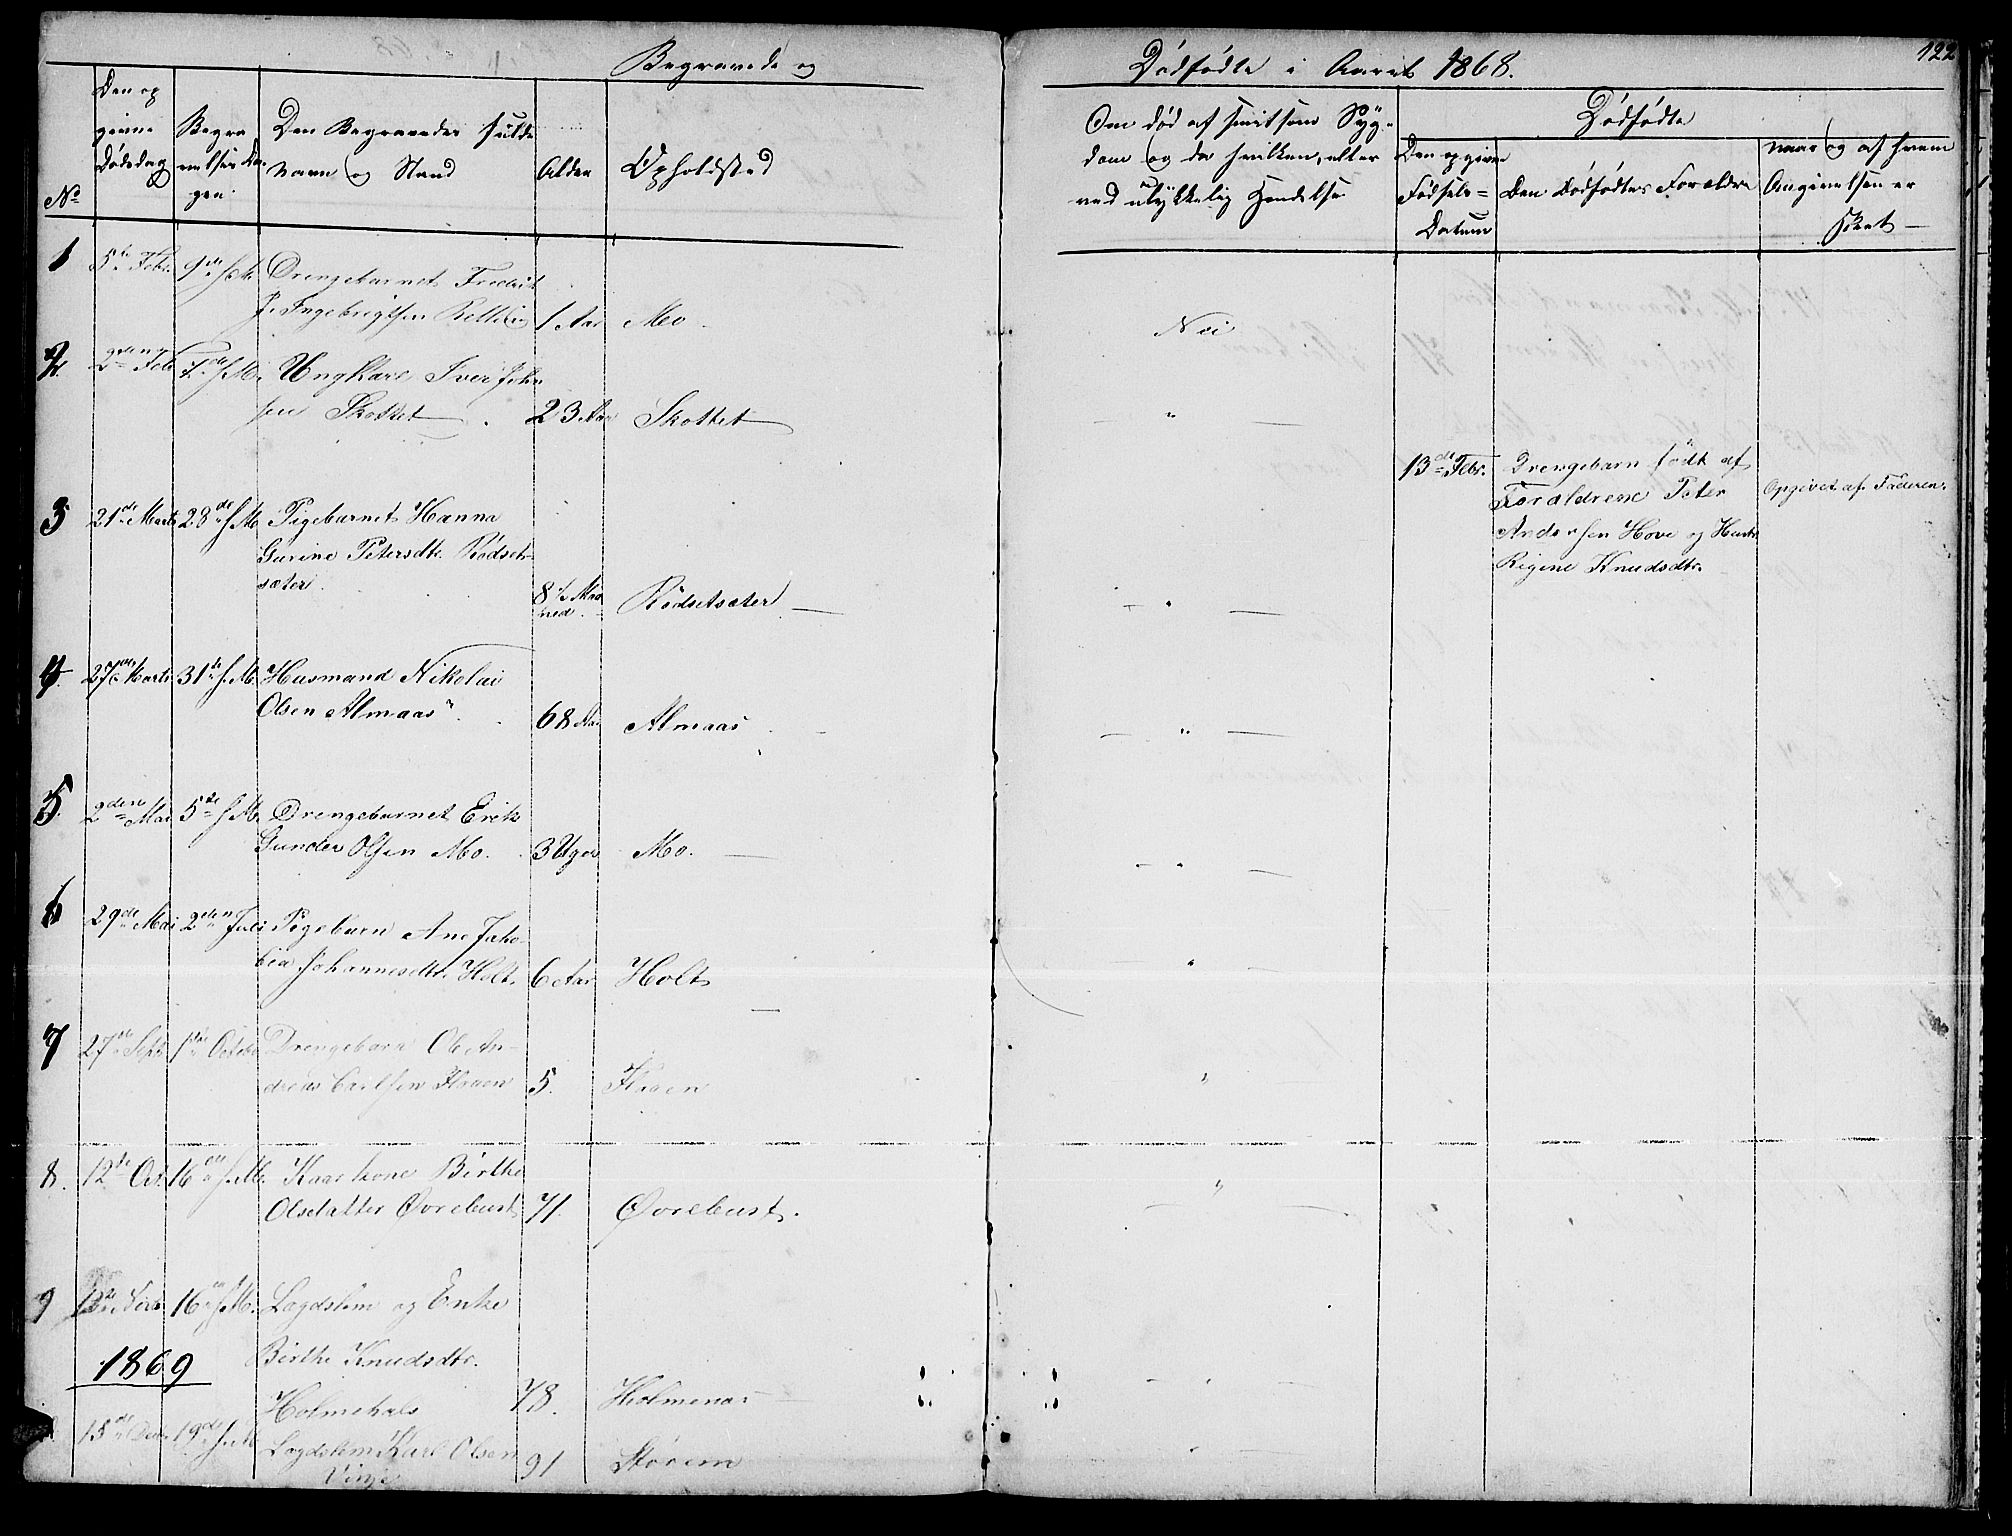 Begravede og
Dødfødte i Aaret 1868.
122
No
Den op
givne
Dødsdag
Begra
velses Da-
gen.
Den Begravedes fulde
Navn og Stand
Alder
Opholdsted
Om død af smitsom Syg-
dom og da hvilken, eller
ved ulykkelig Hendelse
Dødfødte
Den opgivne
Fødsels=
Datum
Den Dødfødtes Forældre
naar og af hvem
Angivelsen er
skeet
1 5te Febr. 9de s.M. Drengebarnet Fredrik
Ingebrigtsen 1 Aar Mo. Nei
2. 2den Feb 7de s.M. Ungkarl Iver John
sen Skottet. 23 Aar Skottet "
13de Febr. Drengebarn født af
Forældrene Peter
Andersen Hove og Hustr.
Regine Knudsdtr.
Opgivet af Faderen.
3 21de Marts 28de s.M. Pigebarnet Hanna
Gurine Petersdtr. Rödset-
sæter. 8 1/2 Maa
ned. Rödsetsæter "
4. 27de Marts 31te s.M. Husmand Nikolai
Olsen Almaas 68 Aar Almaas "
5. 2den Mai 5te s.M. Drengebarnet Erik
Gunder Olsen Mo. 3 Uger Mo. "
6 29de Mai 2den Juli Pigebarn Ane Jako-
bia Johannesdtr. Holt. 6 Aar Holt "
7 27de Sept 1ste Octob. Drengebarn Ole An-
dreas 5. "
8. 12te Oct. 16de s.M. Kaarkone Birthe
Olsdatter Øvrebust 71. Øvrebust. "
9 16de s.M. Lægdslem og Enke
Birthe Knudsdtr.
Holmehals 78. Holmenes "
1869
15de 19de s.M. Lægdslem Karl Olsen 91 Storem "